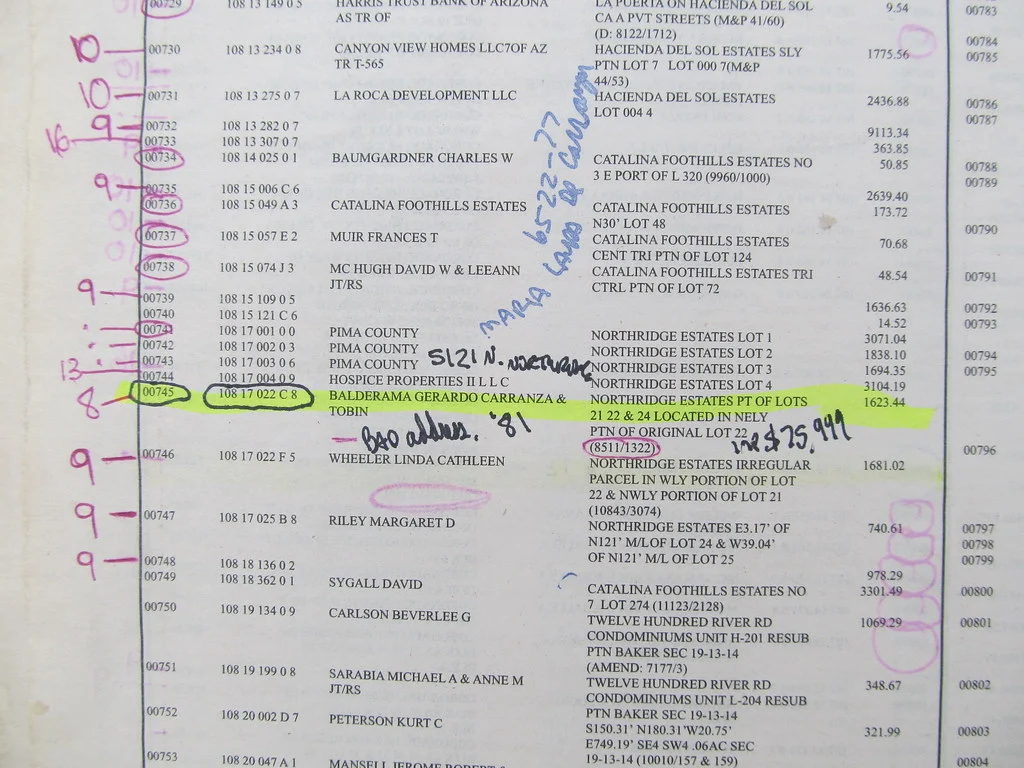 00729 108 13 149 0 5 HARRIS TRUST BANK OF ARIZONA LA PUERTA ON HACIENDA DEL SOL 9.54 00783
AS TR OF CA A PVT STREETS (M&P 41/60)
(D: 8122/1712) 00784
10 00730 108 13 234 0 8 CANYON VIEW HOMES LLC7OF AZ HACIENDA DEL SOL ESTATES SLY 1775.56 00785
TR T-565 PTN LOT 7 LOT 000 7(M&P
44/53)
10 00731 108 13 275 0 7 LA ROCA DEVELOPMENT LLC HACIENDA DEL SOL ESTATES 2436.88 00786
LOT 004 4 00787
9 00732 108 13 282 0 7 9113.34
16 00733 108 13 307 0 7 363.85
00734 108 14 025 0 1 BAUMGARDNER CHARLES W CATALINA FOOTHILLS ESTATES NO 50.85 00788
3 E PORT OF L 320 (9960/1000) 00789
9 00735 108 15 006 C 6 2639.40
00736 108 15 049 A 3 CATALINA FOOTHILLS ESTATES CATALINA FOOTHILLS ESTATES 173.72
N30' LOT 48 00790
00737 108 15 057 E 2 MUIR FRANCES T CATALINA FOOTHILLS ESTATES 70.68
CENT TRI PTN OF LOT 124
00738 108 15 074 J 3 MC HUGH DAVID W & LEEANN CATALINA FOOTHILLS ESTATES TRI 48.54 00791
JT/RS CTRL PTN OF LOT 72
9 00739 108 15 109 0 5 1636.63 00792
00740 108 15 121 C 6 14.52 00793
MARIA
6522-77
00741 108 17 001 0 0 PIMA COUNTY NORTHRIDGE ESTATES LOT 1 3071.04
00742 108 17 002 0 3 PIMA COUNTY NORTHRIDGE ESTATES LOT 2 1838.10 00794
13 00743 108 17 003 0 6 PIMA COUNTY 5121 N. NORTHRIDGE NORTHRIDGE ESTATES LOT 3 1694.35 00795
00744 108 17 004 0 9 HOSPICE PROPERTIES II L L C NORTHRIDGE ESTATES LOT 4 3104.19
8 00745 108 17 022 C 8 BALDERAMA GERARDO CARRANZA & NORTHRIDGE ESTATES PT OF LOTS 1623.44
TOBIN 21 22 & 24 LOCATED IN NELY
BAD address. '81 PTN OF ORIGINAL LOT 22 $75,999
(8511/1322) 00796
9 00746 108 17 022 F 5 WHEELER LINDA CATHLEEN NORTHRIDGE ESTATES IRREGULAR 1681.02
PARCEL IN WLY PORTION OF LOT
22 & NWLY PORTION OF LOT 21
(10843/3074)
9 00747 108 17 025 B 8 RILEY MARGARET D NORTHRIDGE ESTATES E3.17' OF 740.61 00797
N121' M/LOF LOT 24 & W39.04' 00798
OF N121' M/L OF LOT 25 00799
9 00748 108 18 136 0 2 978.29
00749 108 18 362 0 1 SYGALL DAVID CATALINA FOOTHILLS ESTATES NO 3301.49 00800
7 LOT 274 (11123/2128)
00750 108 19 134 0 9 CARLSON BEVERLEE G TWELVE HUNDRED RIVER RD 1069.29 00801
CONDOMINIUMS UNIT H-201 RESUB
PTN BAKER SEC 19-13-14
(AMEND: 7177/3)
00751 108 19 199 0 8 SARABIA MICHAEL A & ANNE M TWELVE HUNDRED RIVER RD 348.67 00802
JT/RS CONDOMINIUMS UNIT L-204 RESUB
PTN BAKER SEC 19-13-14
00752 108 20 002 D 7 PETERSON KURT C S150.31' N180.31'W20.75' 321.99 00803
E749.19' SE4 SW4 .06AC SEC
19-13-14 (10010/157 & 159)
00753 108 20 047 A 1 MANSELL JEROME ROBERT 00804